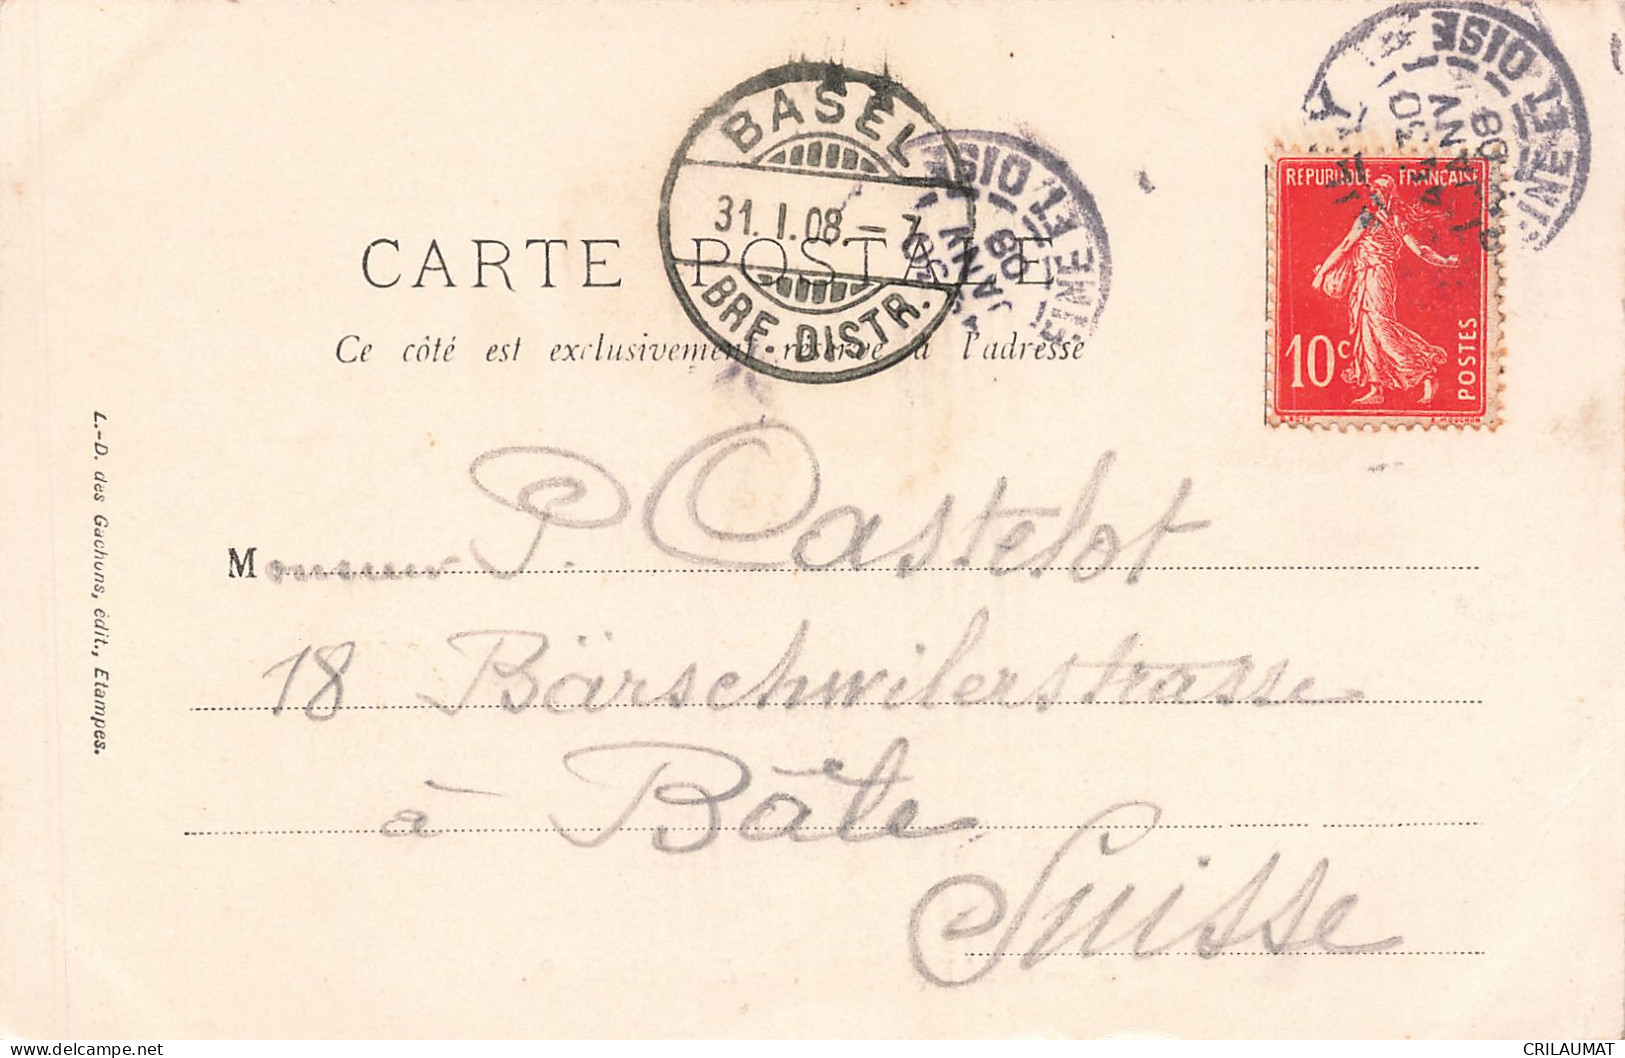 BASEL
31. I. 08. - 7
BRF. DISTR.
SEINE ET OISE
30
JANV
08
SEINE ET OISE
30
JANV
08
REPUBLIQUE FRANÇAISE
10c
POSTES
O. ROTY
E. MOUCHON
CARTE POSTALE
Ce côté est exclusivement réservé à l'adresse
Monsieur P. Castelot
18 Bärschwilerstrasse
à Bâle
Suisse
L.-D. des Gachons, édit., Etampes.
CRILAUMAT